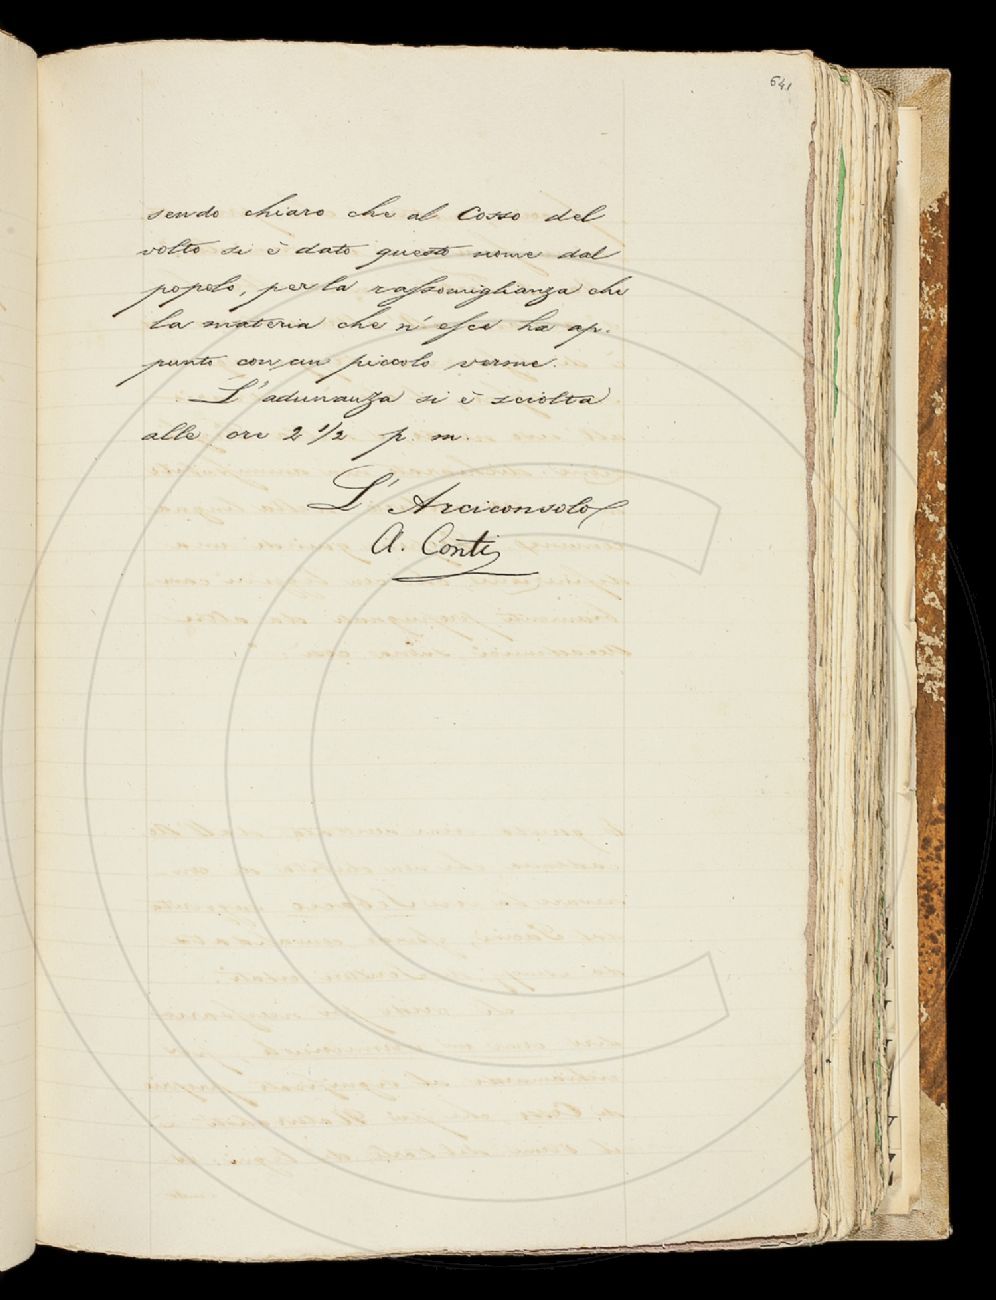 641
sendo chiaro che al Cosso del
volto si è dato questo nome dal
popolo, per la rassomiglianza che
la materia che n' esce ha ap-
punto con un piccolo verme.
L'adunanza si è sciolta
alle ore 2 1/2 p. m.
L' Arciconsolo
A. Conti